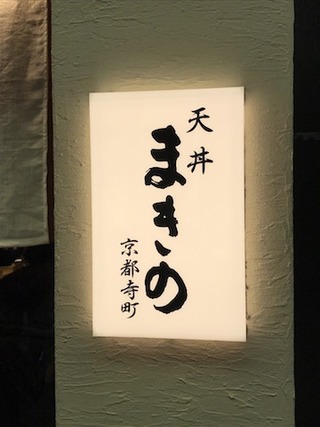 天丼
まきの
京都寺町